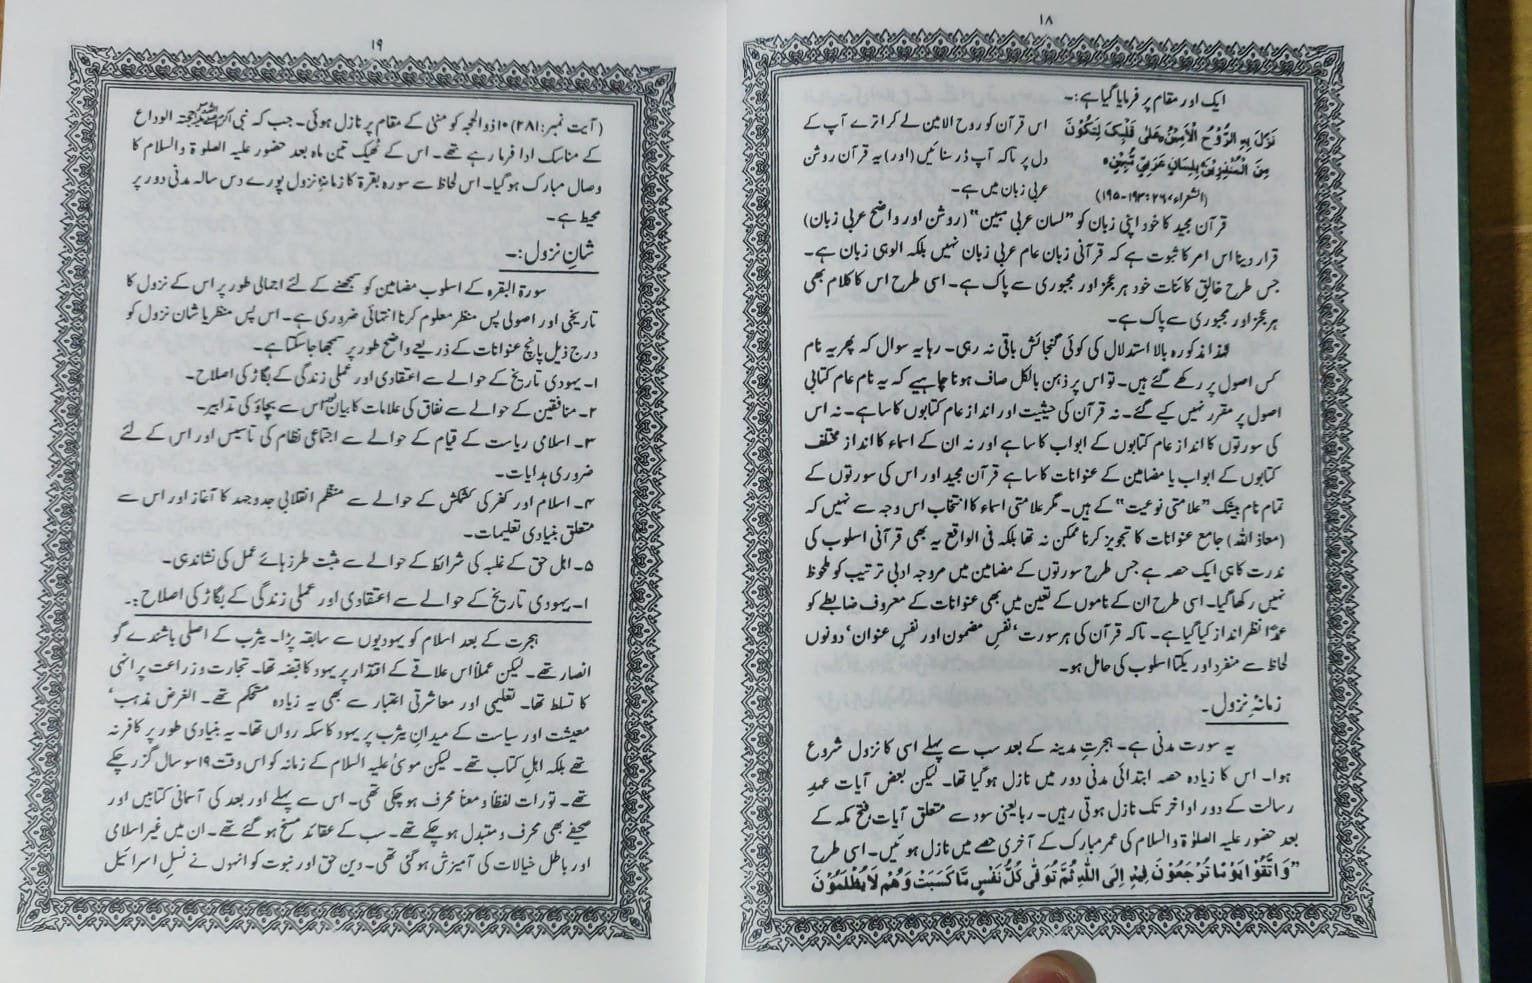 ۱۸
ایک اور مقام پر فرمایا گیا ہے:۔
نَزَلَ بِهِ الرُّوْحُ الْاَمِيْنُ عَلٰى قَلْبِكَ لِتَكُوْنَ
مِنَ الْمُنْذِرِيْنَ بِلِسَانٍ عَرَبِيٍّ مُّبِيْنٍ
(الشعراء، ۲۶:۱۹۳-۱۹۵)
اس قرآن کو روح الامین لے کر اترے آپ کے
دل پر تاکہ آپ ڈر سنائیں (اور) یہ قرآن روشن
عربی زبان میں ہے۔
قرآن مجید کا خود اپنی زبان کو ”لسان عربی مبین“ (روشن اور واضح عربی زبان)
قرار دینا اس امر کا ثبوت ہے کہ قرآنی زبان عام عربی زبان نہیں بلکہ الوہی زبان ہے۔
جس طرح خالقِ کائنات خود ہر عجز اور مجبوری سے پاک ہے۔ اسی طرح اس کا کلام بھی
ہر عجز اور مجبوری سے پاک ہے۔
لہٰذا مذکورہ بالا استدلال کی کوئی گنجائش باقی نہ رہی۔ رہا یہ سوال کہ پھر یہ نام
کس اصول پر رکھے گئے ہیں۔ تو اس پر ذہن بالکل صاف ہونا چاہیے کہ یہ نام عام کتابی
اصول پر مقرر نہیں کیے گئے۔ نہ قرآن کی حیثیت اور انداز عام کتابوں کا سا ہے۔ نہ اس
کی سورتوں کا انداز عام کتابوں کے ابواب کا سا ہے اور نہ ان کے اسماء کا انداز مختلف
کتابوں کے ابواب یا مضامین کے عنوانات کا سا ہے قرآن مجید اور اس کی سورتوں کے
تمام نام بیشک ”علامتی نوعیت“ کے ہیں۔ مگر علامتی اسماء کا انتخاب اس وجہ سے نہیں کہ
(معاذ اللہ) جامع عنوانات کا تجویز کرنا ممکن نہ تھا بلکہ فی الواقع یہ بھی قرآنی اسلوب کی
ندرت کا ہی ایک حصہ ہے جس طرح سورتوں کے مضامین میں مروجہ ادبی ترتیب کو ملحوظ
نہیں رکھا گیا۔ اسی طرح ان کے ناموں کے تعین میں بھی عنوانات کے معروف ضابطے کو
عمداً نظر انداز کیا گیا ہے۔ تاکہ قرآن کی ہر سورت ‘نفسِ مضمون اور نفسِ عنوان‘ دونوں
لحاظ سے منفرد اور یکتا اسلوب کی حامل ہو۔
زمانۂ نزول۔
یہ سورت مدنی ہے۔ ہجرتِ مدینہ کے بعد سب سے پہلے اسی کا نزول شروع
ہوا۔ اس کا زیادہ حصہ ابتدائی مدنی دور میں نازل ہو گیا تھا۔ لیکن بعض آیات عہدِ
رسالت کے دور اواخر تک نازل ہوتی رہیں۔ ربا یعنی سود سے متعلق آیات فتح مکہ کے
بعد حضور علیہ الصلوٰۃ والسلام کی عمر مبارک کے آخری حصے میں نازل ہوئیں۔ اسی طرح
”وَاتَّقُوْا يَوْمًا تُرْجَعُوْنَ فِيْهِ اِلَى اللّٰهِ ثُمَّ تُوَفّٰى كُلُّ نَفْسٍ مَّا كَسَبَتْ وَهُمْ لَا يُظْلَمُوْنَ
۱۹
(آیت نمبر: ۲۸۱) ۱۰ ذوالحجہ کو منیٰ کے مقام پر نازل ہوئی۔ جب کہ نبی اکرم ﷺ حجۃ الوداع
کے مناسک ادا فرما رہے تھے۔ اس کے ٹھیک تین ماہ بعد حضور علیہ الصلوٰۃ والسلام کا
وصال مبارک ہو گیا۔ اس لحاظ سے سورہ بقرۃ کا زمانۂ نزول پورے دس سالہ مدنی دور پر
محیط ہے۔
شانِ نزول:۔
سورۃ البقرہ کے اسلوب مضامین کو سمجھنے کے لئے اجمالی طور پر اس کے نزول کا
تاریخی اور اصولی پس منظر معلوم کرنا انتہائی ضروری ہے۔ اس پس منظر یا شان نزول کو
درج ذیل پانچ عنوانات کے ذریعے واضح طور پر سمجھا جا سکتا ہے۔
۱۔ یہودی تاریخ کے حوالے سے اعتقادی اور عملی زندگی کے بگاڑ کی اصلاح۔
۲۔ منافقین کے حوالے سے نفاق کی علامات کا بیان اس سے بچاؤ کی تدابیر۔
۳۔ اسلامی ریاست کے قیام کے حوالے سے اجتماعی نظام کی تاسیس اور اس کے لئے
ضروری ہدایات۔
۴۔ اسلام اور کفر کی کشمکش کے حوالے سے منظم انقلابی جدوجہد کا آغاز اور اس سے
متعلق بنیادی تعلیمات۔
۵۔ اہل حق کے غلبہ کی شرائط کے حوالے سے مثبت طرز ہائے عمل کی نشاندہی۔
۱۔ یہودی تاریخ کے حوالے سے اعتقادی اور عملی زندگی کے بگاڑ کی اصلاح:۔
ہجرت کے بعد اسلام کو یہودیوں سے سابقہ پڑا۔ یثرب کے اصلی باشندے گو
انصار تھے۔ لیکن عملاً اس علاقے کے اقتدار پر یہود کا قبضہ تھا۔ تجارت و زراعت پر انہی
کا تسلط تھا۔ تعلیمی اور معاشرتی اعتبار سے بھی یہ زیادہ مستحکم تھے۔ الغرض مذہب‘
معیشت اور سیاست کے میدان یثرب پر یہود کا سکہ رواں تھا۔ یہ بنیادی طور پر کافر نہ
تھے بلکہ اہلِ کتاب تھے۔ لیکن موسیٰ علیہ السلام کے زمانہ کو اس وقت ۱۹ سو سال گزر چکے
تھے۔ تورات لفظاً و معناً محرف ہو چکی تھی۔ اس سے پہلے اور بعد کی آسمانی کتابیں اور
صحیفے بھی محرف و متبدل ہو چکے تھے۔ سب کے عقائد مسخ ہو گئے تھے۔ ان میں غیر اسلامی
اور باطل خیالات کی آمیزش ہو گئی تھی۔ دین حق اور نبوت کو انہوں نے نسلِ اسرائیل